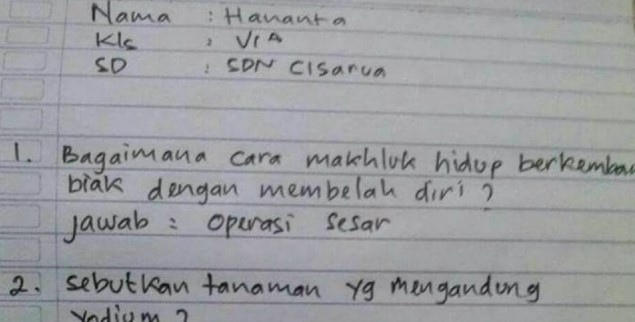 Nama : Hananta
Kls : VI A
SD : SDN Cisarua
1. Bagaimana cara makhluk hidup berkemba
biak dengan membelah diri?
Jawab : Operasi sesar
2. Sebutkan tanaman yg mengandung
Yodium?